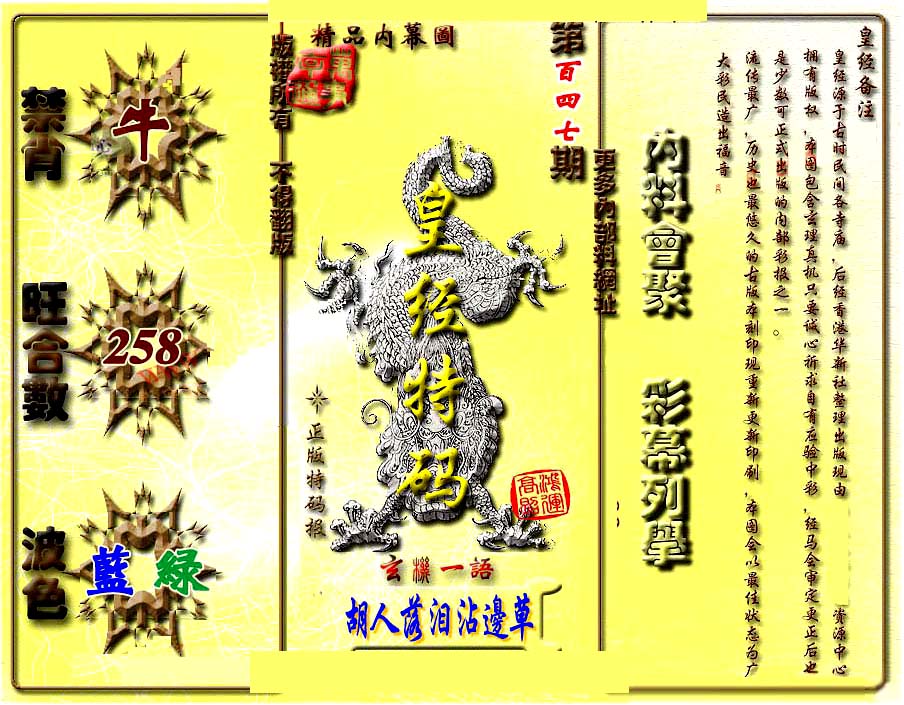 皇经备注
皇经源于古时民间各寺庙,后经香港华新社整理出版现由 资源中心
拥有版权,本图包含玄理真机只要诚心祈求自有应验中彩,经马会审定更正后也
是少数可正式出版的内部彩报之一。
流传最广,历史也最悠久的古版本刻印现重新更新印刷,本图会以最佳状态为广
大彩民造出福音
內料會聚
彩幕列舉
更多內部料網址
第百四七期
精品内幕圖
皇经特码
正版特码报
鸿運高照
玄機一語
胡人落泪沾邊草
版權所有
不得翻版
禁肖
牛
旺合數
258
波色
藍 綠